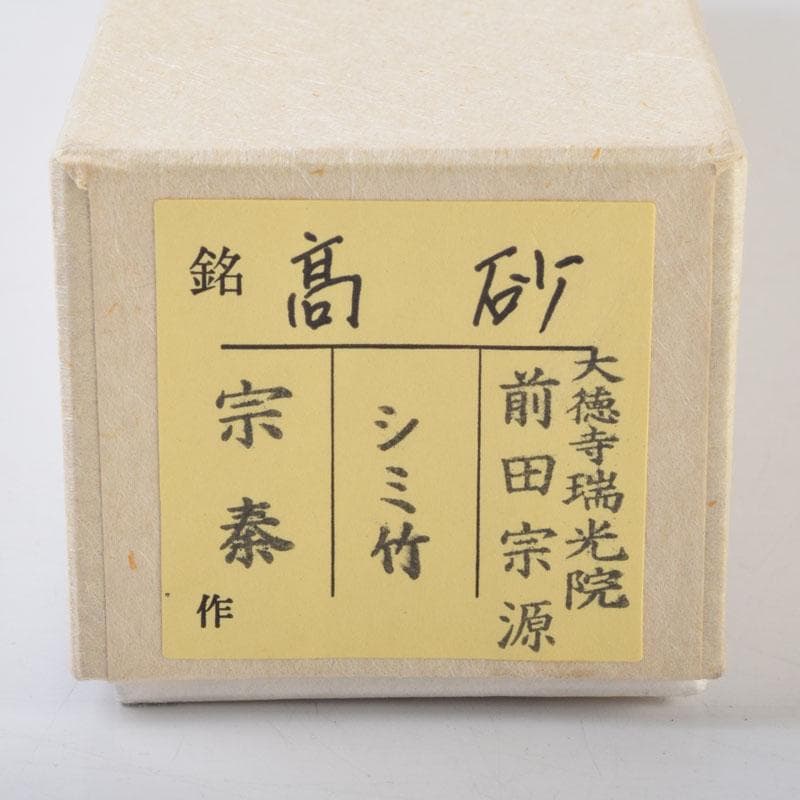 銘 髙砂
大徳寺瑞光院
前田宗源
シミ竹
宗泰
作